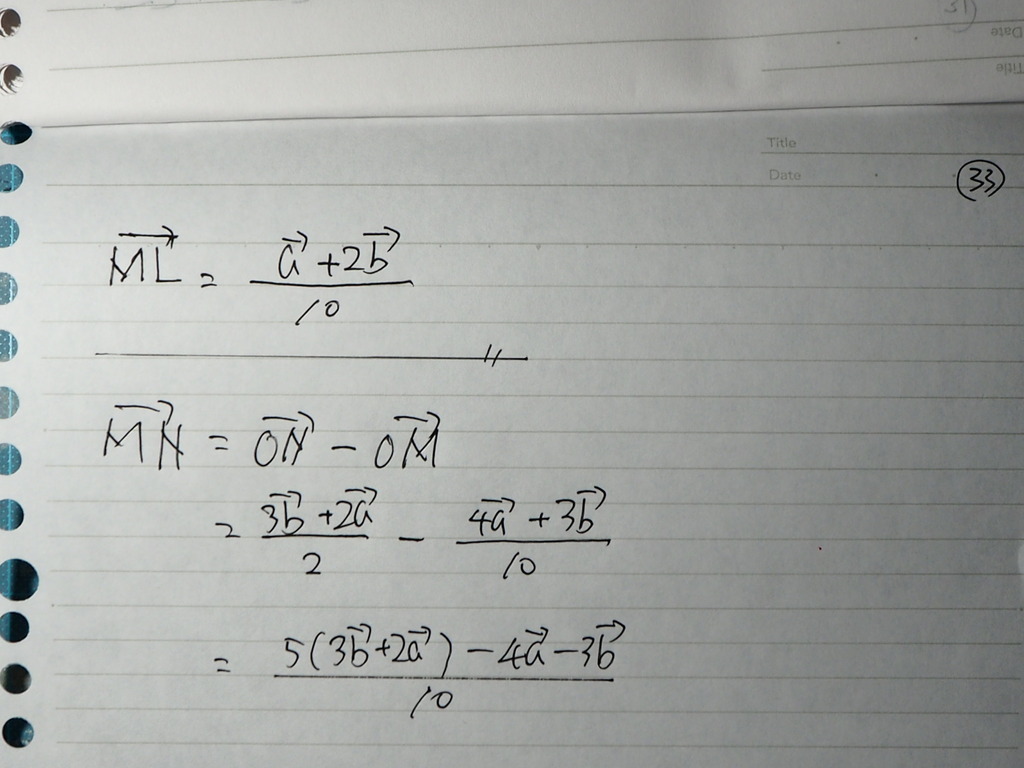 31
Date
Title
Title
Date
33
$\overrightarrow{ML} = \frac{\vec{a} + 2\vec{b}}{10}$
$\overrightarrow{MN} = \overrightarrow{ON} - \overrightarrow{OM}$
$= \frac{3\vec{b} + 2\vec{a}}{2} - \frac{4\vec{a} + 3\vec{b}}{10}$
$= \frac{5(3\vec{b} + 2\vec{a}) - 4\vec{a} - 3\vec{b}}{10}$